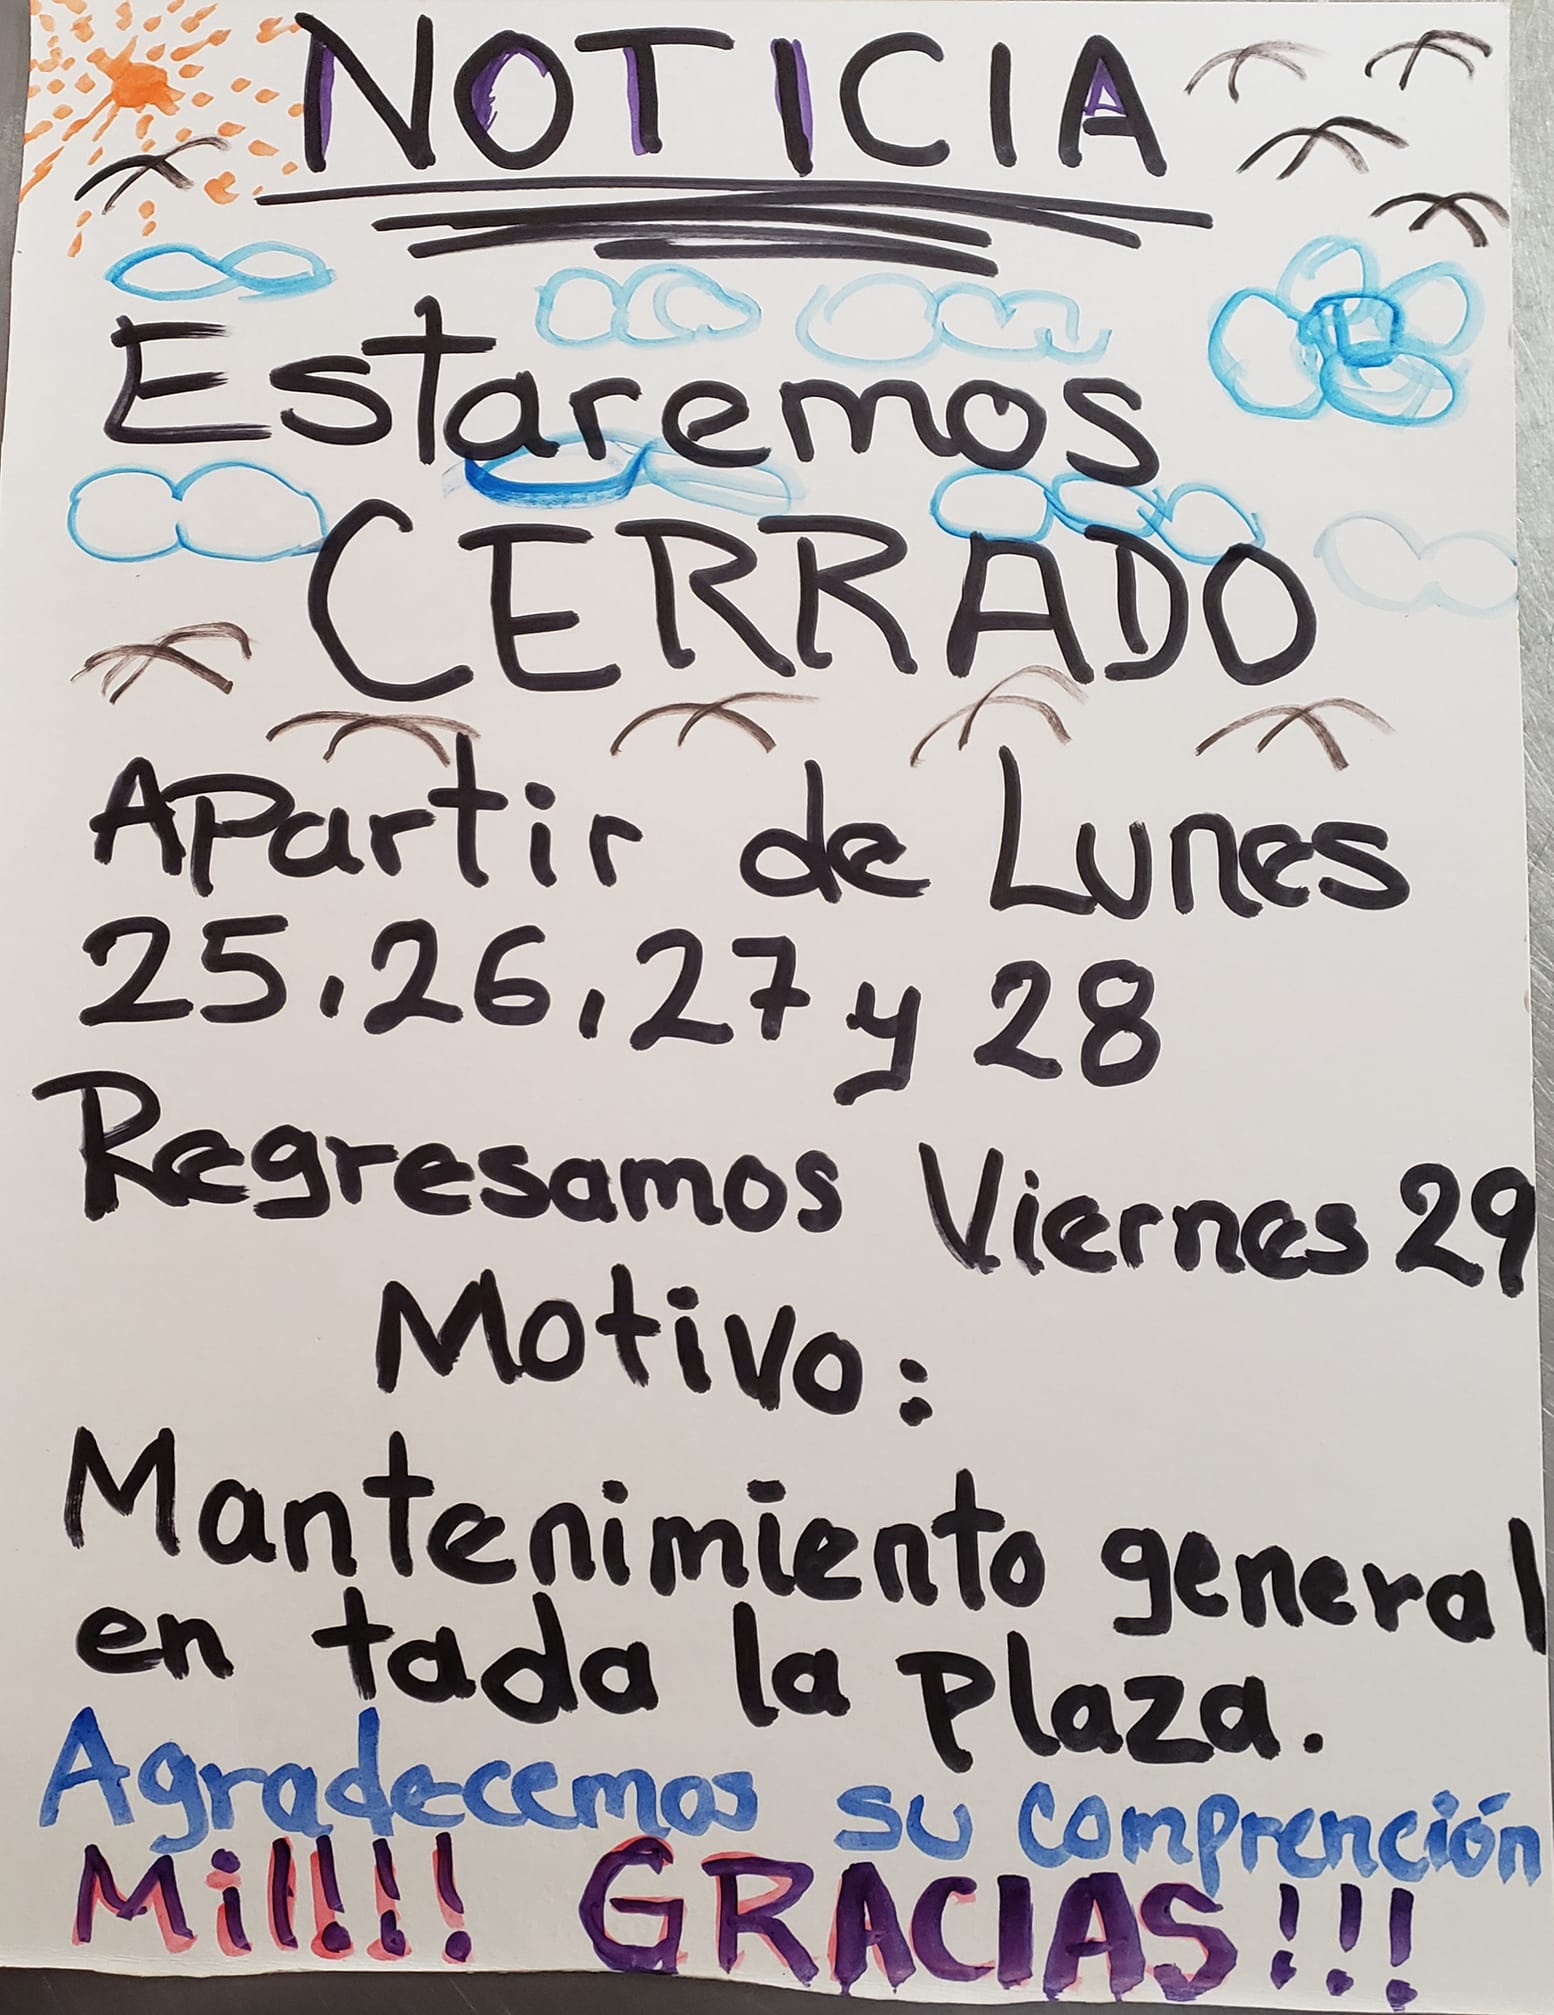 NOTICIA
Estaremos
CERRADO
APartir de Lunes
25, 26, 27 y 28
Regresamos Viernes 29
Motivo:
Mantenimiento general
en tada la Plaza.
Agradecemos su Comprención
Mil!!! GRACIAS!!!